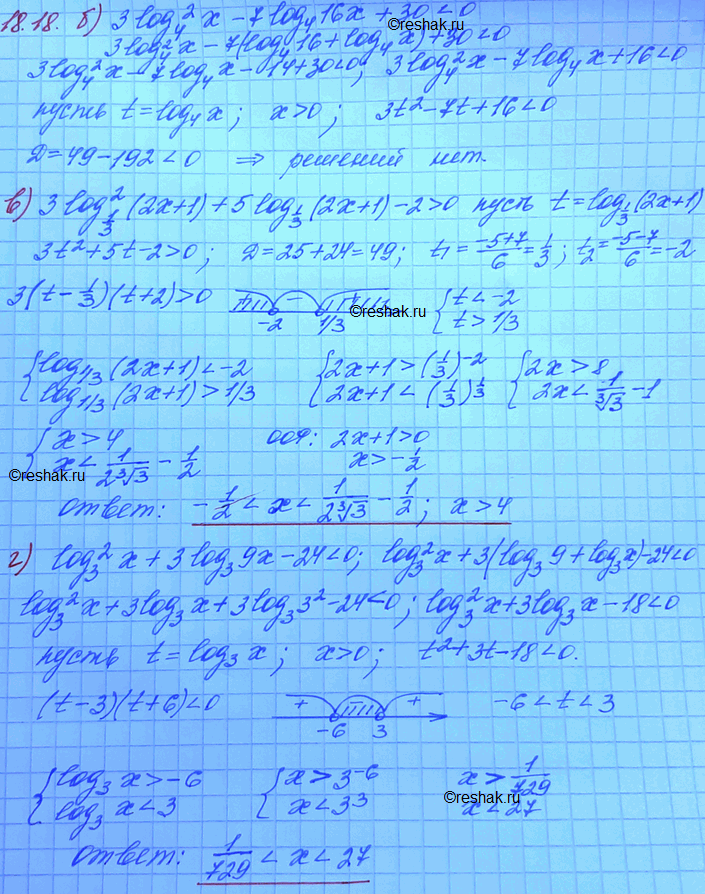 18.18. б) 3 log₄² x − 7 log₄ 16x + 30 < 0
©reshak.ru
3 log₄² x − 7(log₄ 16 + log₄ x) + 30 < 0
3 log₄² x − 7 log₄ x − 14 + 30 < 0; 3 log₄² x − 7 log₄ x + 16 < 0
©reshak.ru
пусть t = log₄ x; x > 0; 3t² − 7t + 16 < 0
Д = 49 − 192 < 0 ⇒ решений нет.
в) 3 log²_{1/3} (2x+1) + 5 log_{1/3} (2x+1) − 2 > 0 пусть t = log_{1/3} (2x+1)
3t² + 5t − 2 > 0; Д = 25 + 24 = 49; t₁ = (−5+7)/6 = 1/3; t₂ = (−5−7)/6 = −2
3(t − 1/3)(t + 2) > 0 + − + −2 1/3 { t < −2
t > 1/3
©reshak.ru
{ log_{1/3} (2x+1) < −2 { 2x+1 > (1/3)⁻² { 2x > 8
log_{1/3} (2x+1) > 1/3 2x+1 < (1/3)^{1/3} 2x < 1/∛3 − 1
{ x > 4 ООФ: 2x+1 > 0
x < 1/(2∛3) − 1/2 x > −1/2
©reshak.ru
ответ: −1/2 < x < 1/(2∛3) − 1/2; x > 4
г) log₃² x + 3 log₃ 9x − 24 < 0; log₃² x + 3(log₃ 9 + log₃ x) − 24 < 0
log₃² x + 3 log₃ x + 3 log₃ 3² − 24 < 0; log₃² x + 3 log₃ x − 18 < 0
пусть t = log₃ x; x > 0; t² + 3t − 18 < 0.
(t − 3)(t + 6) < 0 + − + −6 3 −6 < t < 3
{ log₃ x > −6 { x > 3⁻⁶ x > 1/729
log₃ x < 3 x < 3³ x < 27
©reshak.ru
ответ: 1/729 < x < 27